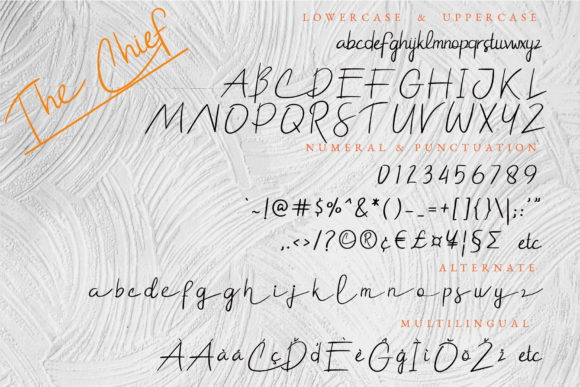 The Chief
LOWERCASE & UPPERCASE
abcdefghijklmnopqrstuvwxyz
ABCDEFGHIJKL
MNOPQRSTUVWXYZ
NUMERAL & PUNCTUATION
0123456789
`~|@#$%^&*()–_=+[]{}\|;:'"
,.<>/?©®¢€£¤¥¦§Σ etc
ALTERNATE
abcdefghijklmnopswyz
MULTILINGUAL
ÀÄàäÇçĎďÈèĜĝÌïÖöŽž etc